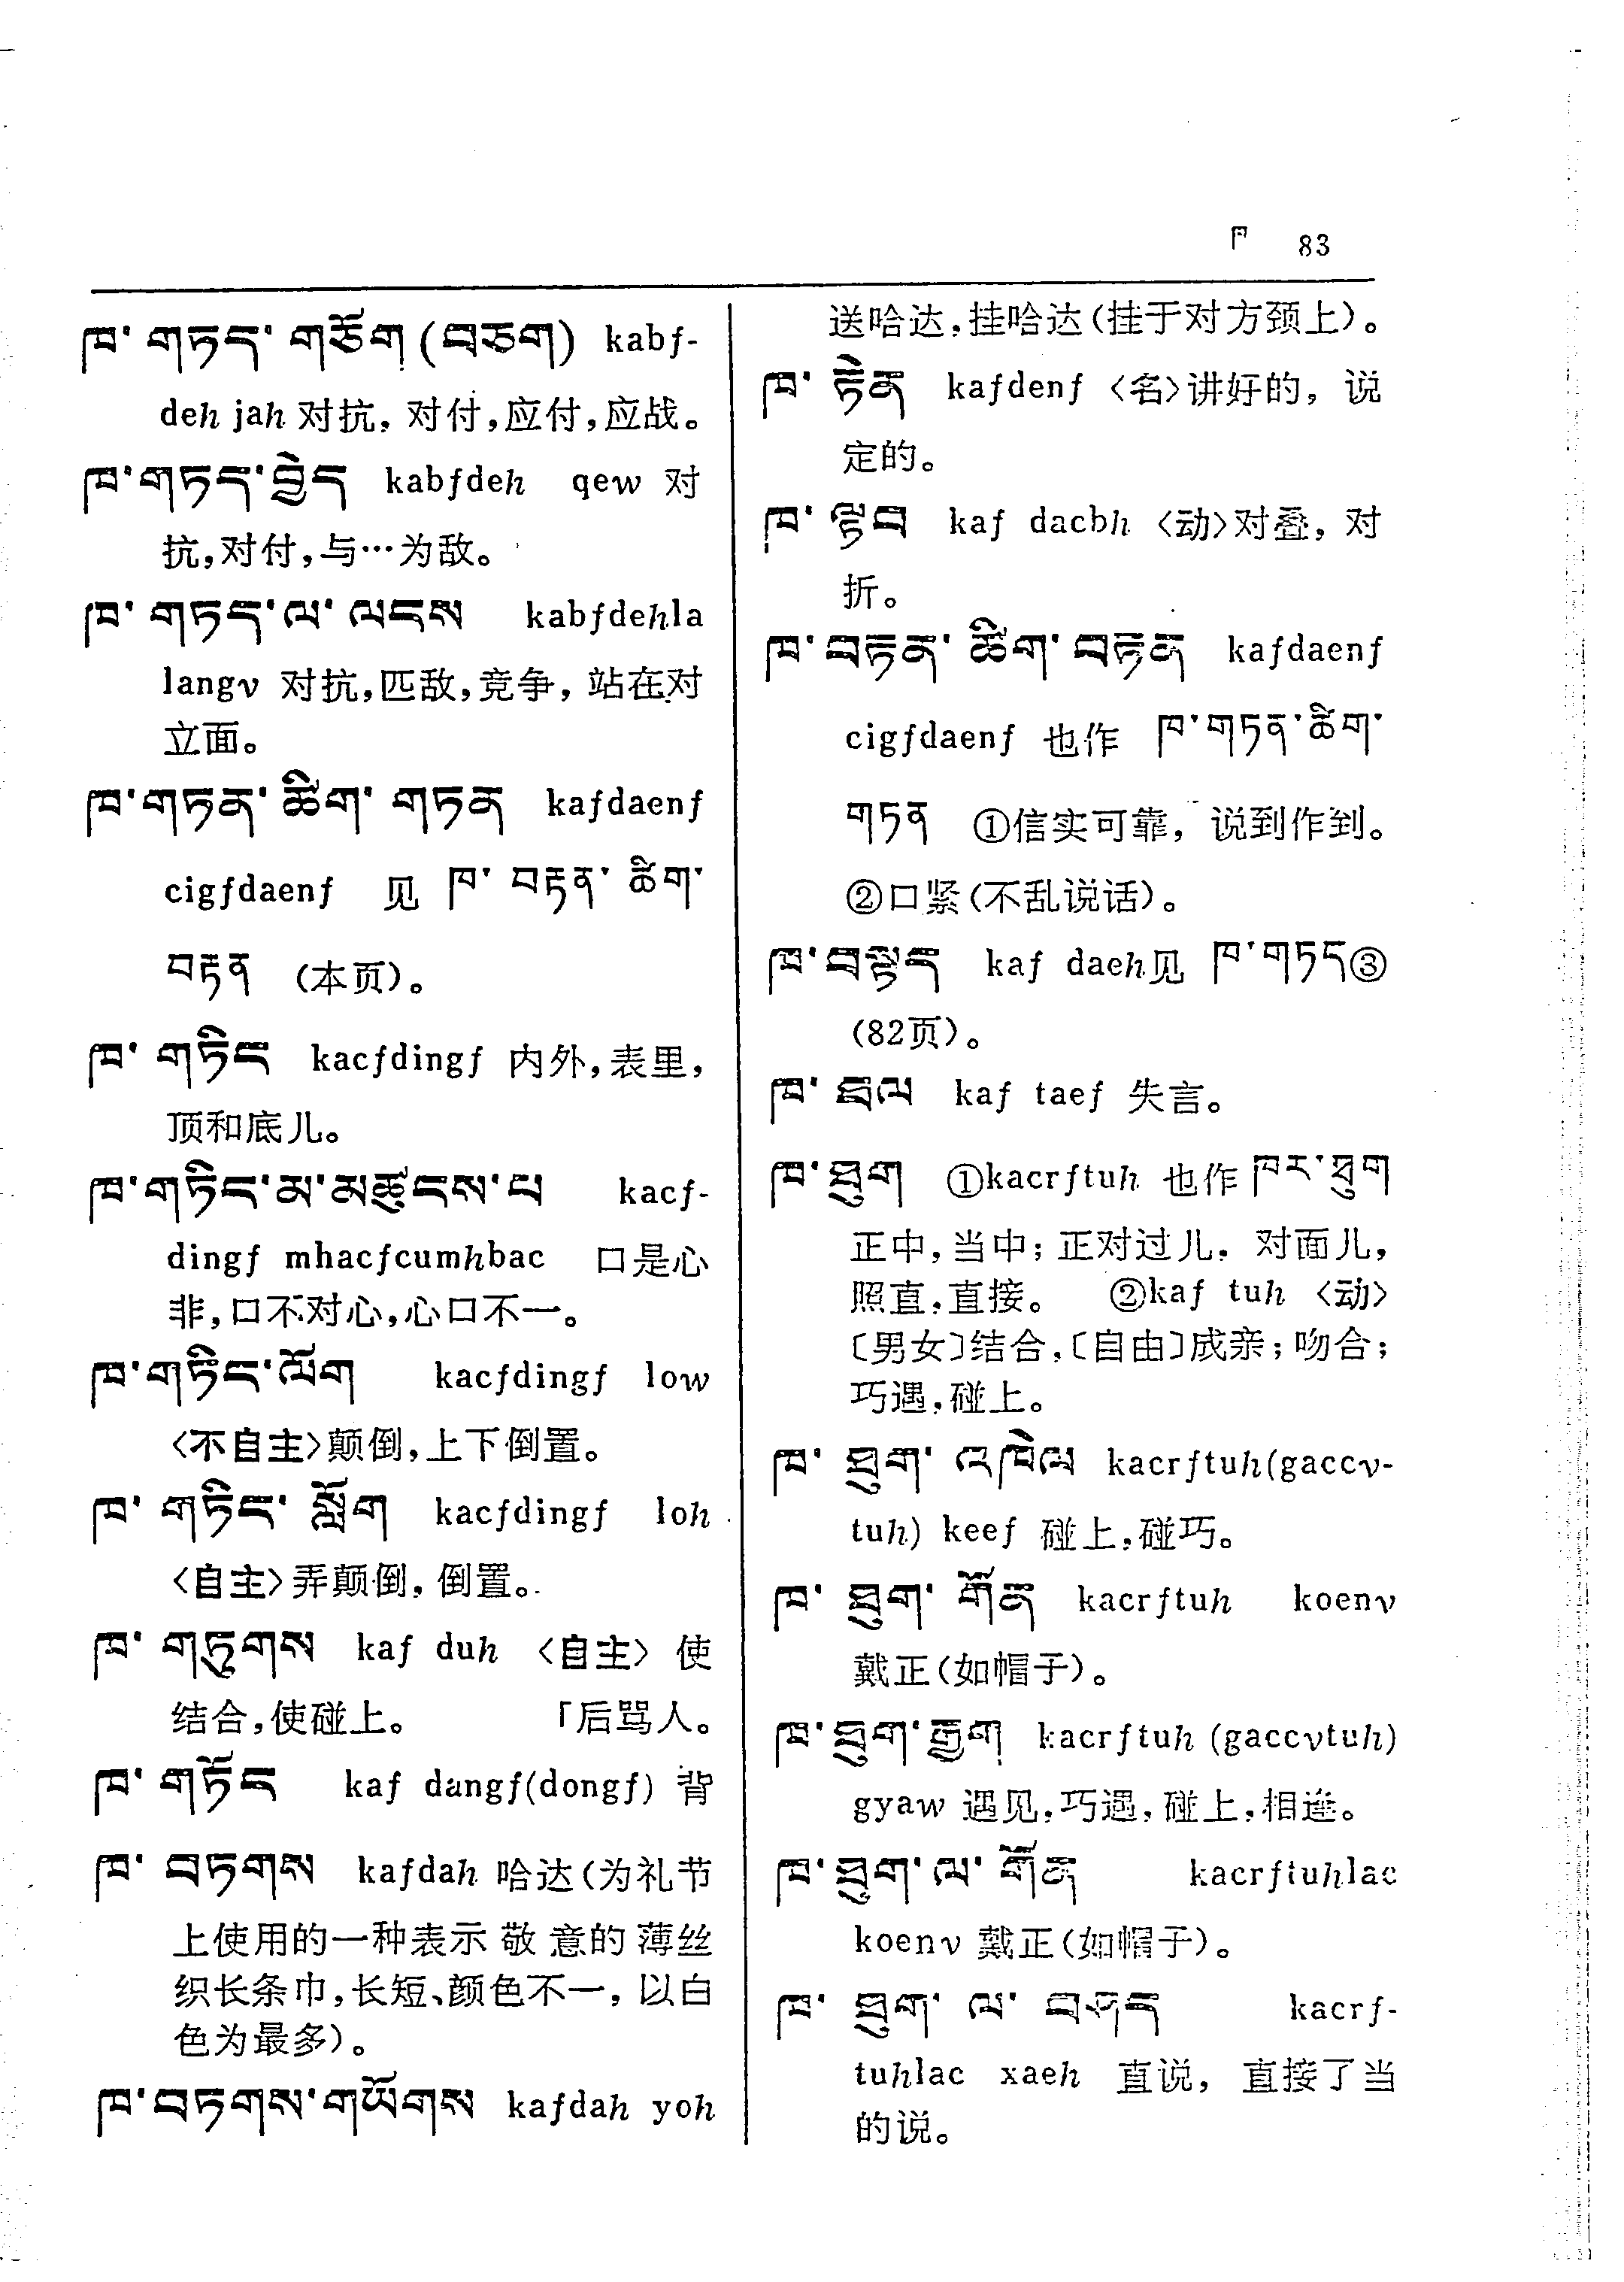 ཁ 83
ཁ་ གཏད་ གཙོག (བཅག) kabf-
deh jah 对抗，对付，应付，应战。
ཁ་གཏད་བྱེད kabfdeh qew 对
抗，对付，与…为敌。
ཁ་ གཏད་ལ་ ལངས kabfdehla
langv 对抗，匹敌，竞争，站在对
立面。
ཁ་གཏན་ ཚིག་ གཏན kafdaenf
cigfdaenf 见 ཁ་ བརྟན་ ཚིག་
བརྟན （本页）。
ཁ་ གཏིང kacfdingf 内外，表里，
顶和底儿。
ཁ་གཏིང་མ་མཚུངས་པ kacf-
dingf mhacfcumhbac 口是心
非，口不对心，心口不一。
ཁ་གཏིང་ལོག kacfdingf low
〈不自主〉颠倒，上下倒置。
ཁ་ གཏིང་ སློག kacfdingf loh
〈自主〉弄颠倒，倒置。
ཁ་ གཏུགས kaf duh 〈自主〉 使
结合，使碰上。 「后骂人。
ཁ་ གཏོང kaf dangf(dongf) 背
ཁ་ བཏགས kafdah 哈达（为礼节
上使用的一种表示敬意的薄丝
织长条巾，长短、颜色不一，以白
色为最多）。
ཁ་བཏགས་གཡོགས kafdah yoh
送哈达，挂哈达（挂于对方颈上）。
ཁ་ རྟེན kafdenf 〈名〉讲好的，说
定的。
ཁ་ ལྟབ kaf dacbh 〈动〉对叠，对
折。
ཁ་བརྟན་ ཚིག་བརྟན kafdaenf
cigfdaenf 也作 ཁ་གཏན་ཚིག་
གཏན ①信实可靠，说到作到。
②口紧（不乱说话）。
ཁ་བལྟད kaf daeh见 ཁ་གཏད③
(82页)。
ཁ་ ཐལ kaf taef 失言。
ཁ་ཐུག ①kacrftuh 也作 ཁར་ཐུག
正中，当中；正对过儿，对面儿，
照直，直接。 ②kaf tuh 〈动〉
〔男女〕结合，〔自由〕成亲；吻合；
巧遇，碰上。
ཁ་ ཐུག་ འཁེལ kacrftuh(gaccv-
tuh) keef 碰上，碰巧。
ཁ་ ཐུག་ གོན kacrftuh koenv
戴正（如帽子）。
ཁ་ཐུག་རྒྱག kacrftuh (gaccvtuh)
gyaw 遇见，巧遇，碰上，相逢。
ཁ་ཐུག་ལ་ གོན kacrftuhlac
koenv 戴正（如帽子）。
ཁ་ ཐུག་ ལ་ བཤད kacrf-
tuhlac xaeh 直说，直接了当
的说。